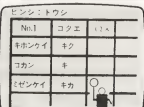 ヒンシ:トウシ
No.1 コクエ
キホンケイ キク
コカン キ
ミゼンケイ キカ